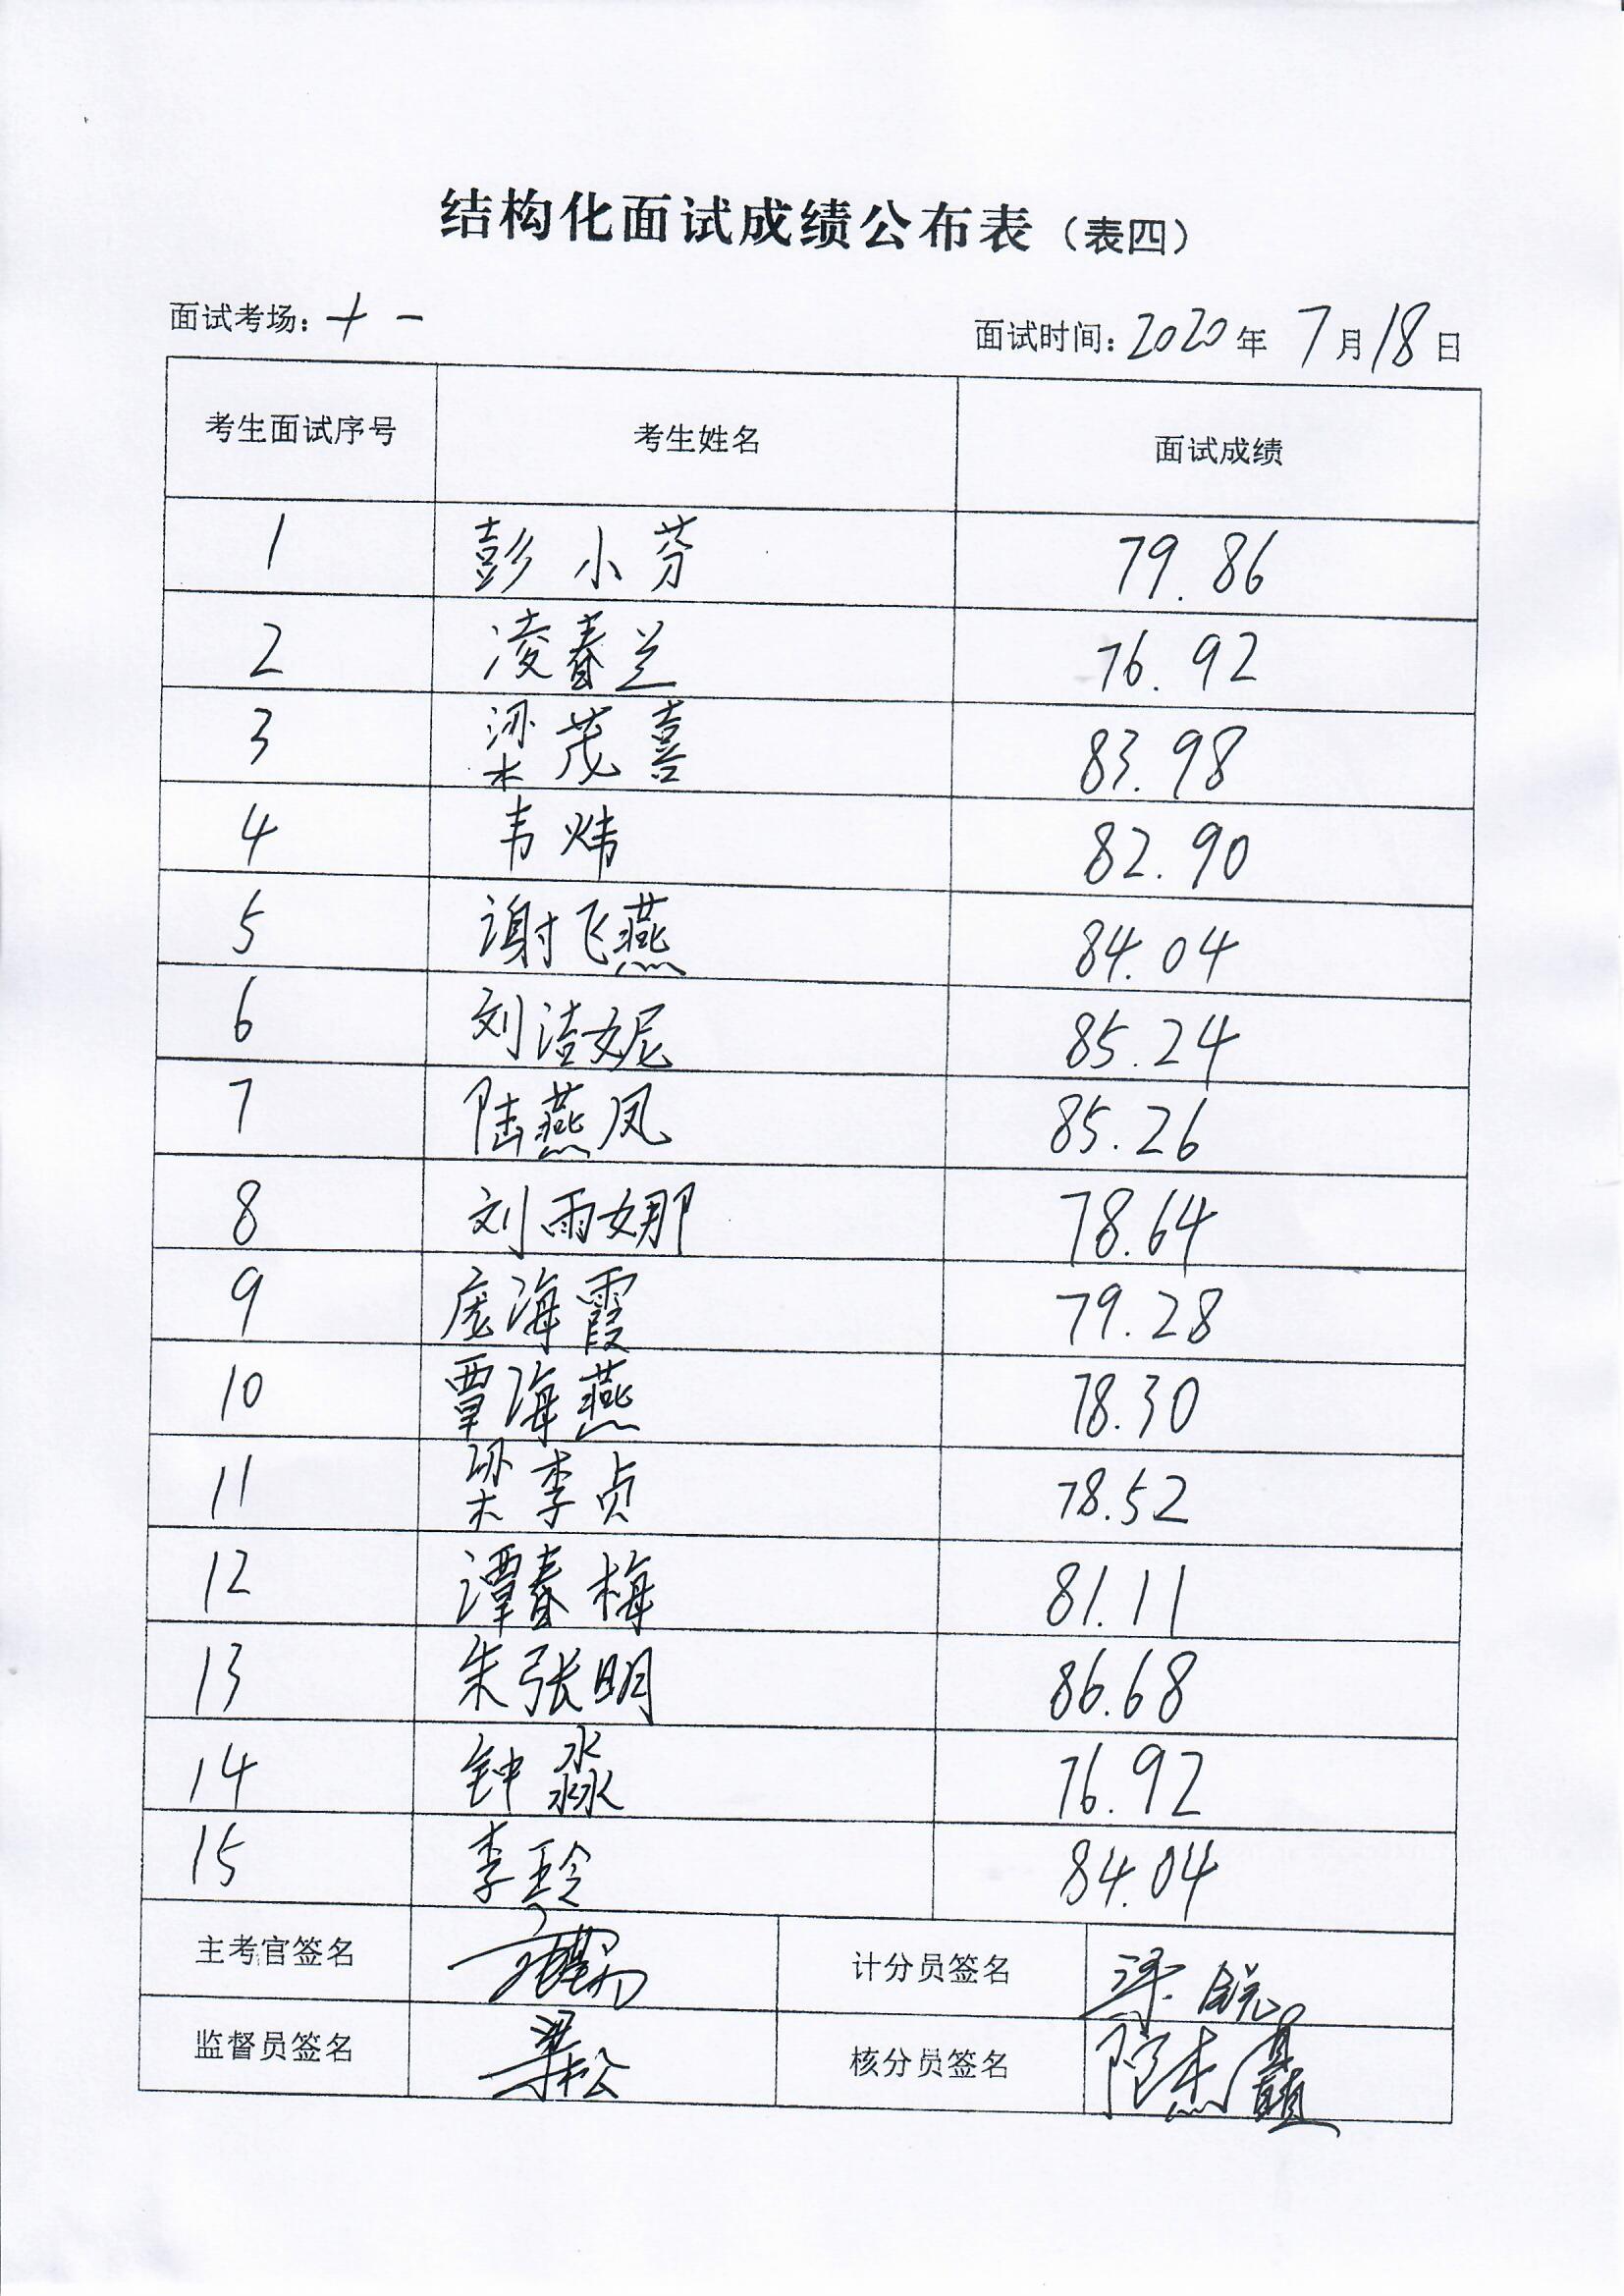 结构化面试成绩公布表（表四）
面试考场：十一 面试时间：2020年 7月18日
考生面试序号 考生姓名 面试成绩
1 彭小芬 79.86
2 凌春兰 76.92
3 梁茂喜 83.98
4 韦炜 82.90
5 谢飞燕 84.04
6 刘洁妮 85.24
7 陆燕凤 85.26
8 刘雨娜 78.64
9 庞海霞 79.28
10 覃海燕 78.30
11 梁李贞 78.52
12 谭春梅 81.11
13 朱张明 86.68
14 钟淼 76.92
15 李玲 84.04
主考官签名 计分员签名
监督员签名 梁松 核分员签名